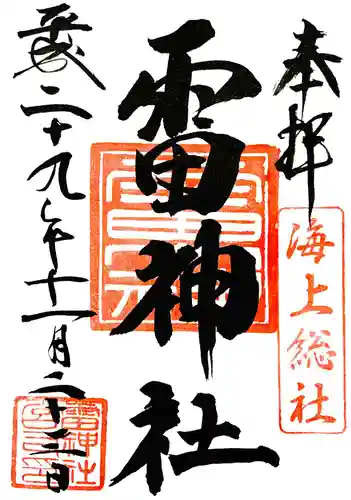 奉拝
海上総社
雷神社
平成二十九年十一月二十三日
雷神社